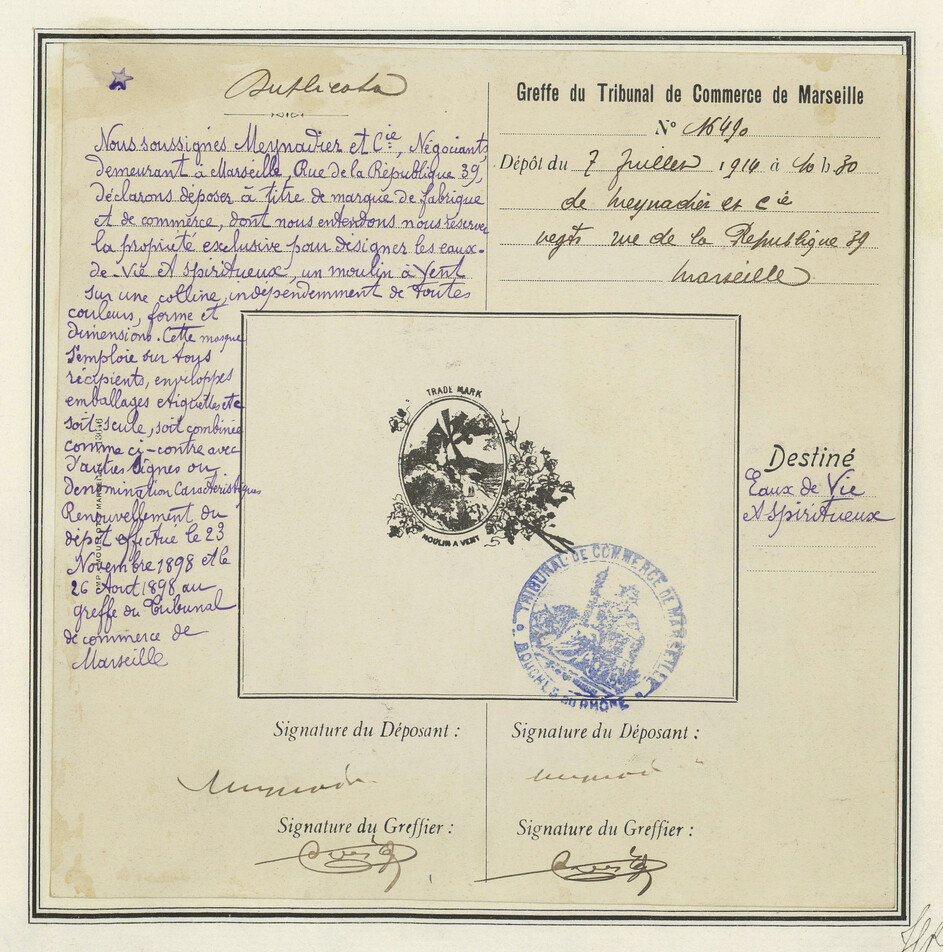 Duplicata
Nous soussignés Meynadier et Cie, Négociants
demeurant à Marseille, Rue de la République 39,
déclarons déposer à titre de marque de fabrique
et de commerce, dont nous entendons nous réserver
la propriété exclusive pour désigner les eaux-
de-Vie et Spiritueux, un moulin à Vent
sur une colline, indépendemment de toutes
couleurs, forme et
dimensions. Cette marque
s'emploie sur tous
récipients, enveloppes
emballages etiquettes etc
soit seule, soit combinée
comme ci-contre avec
d'autres signes ou
denomination Caractéristiques
Renouvellement du
dépôt effectué le 23
Novembre 1898 et le
26 Aout 1898 au
greffe du Tribunal
de commerce de
Marseille
Greffe du Tribunal de Commerce de Marseille
N°
Dépôt du 7 Juillet 1914 à 10 h 30
de Meynadier et Cie
negts rue de la Republique 39
Marseille
TRADE MARK
MOULIN A VENT
Destiné
Eaux de Vie
et Spiritueux
TRIBUNAL DE COMMERCE DE MARSEILLE
BOUCHES DU RHÔNE
Signature du Déposant :
Signature du Déposant :
Signature du Greffier :
Signature du Greffier :